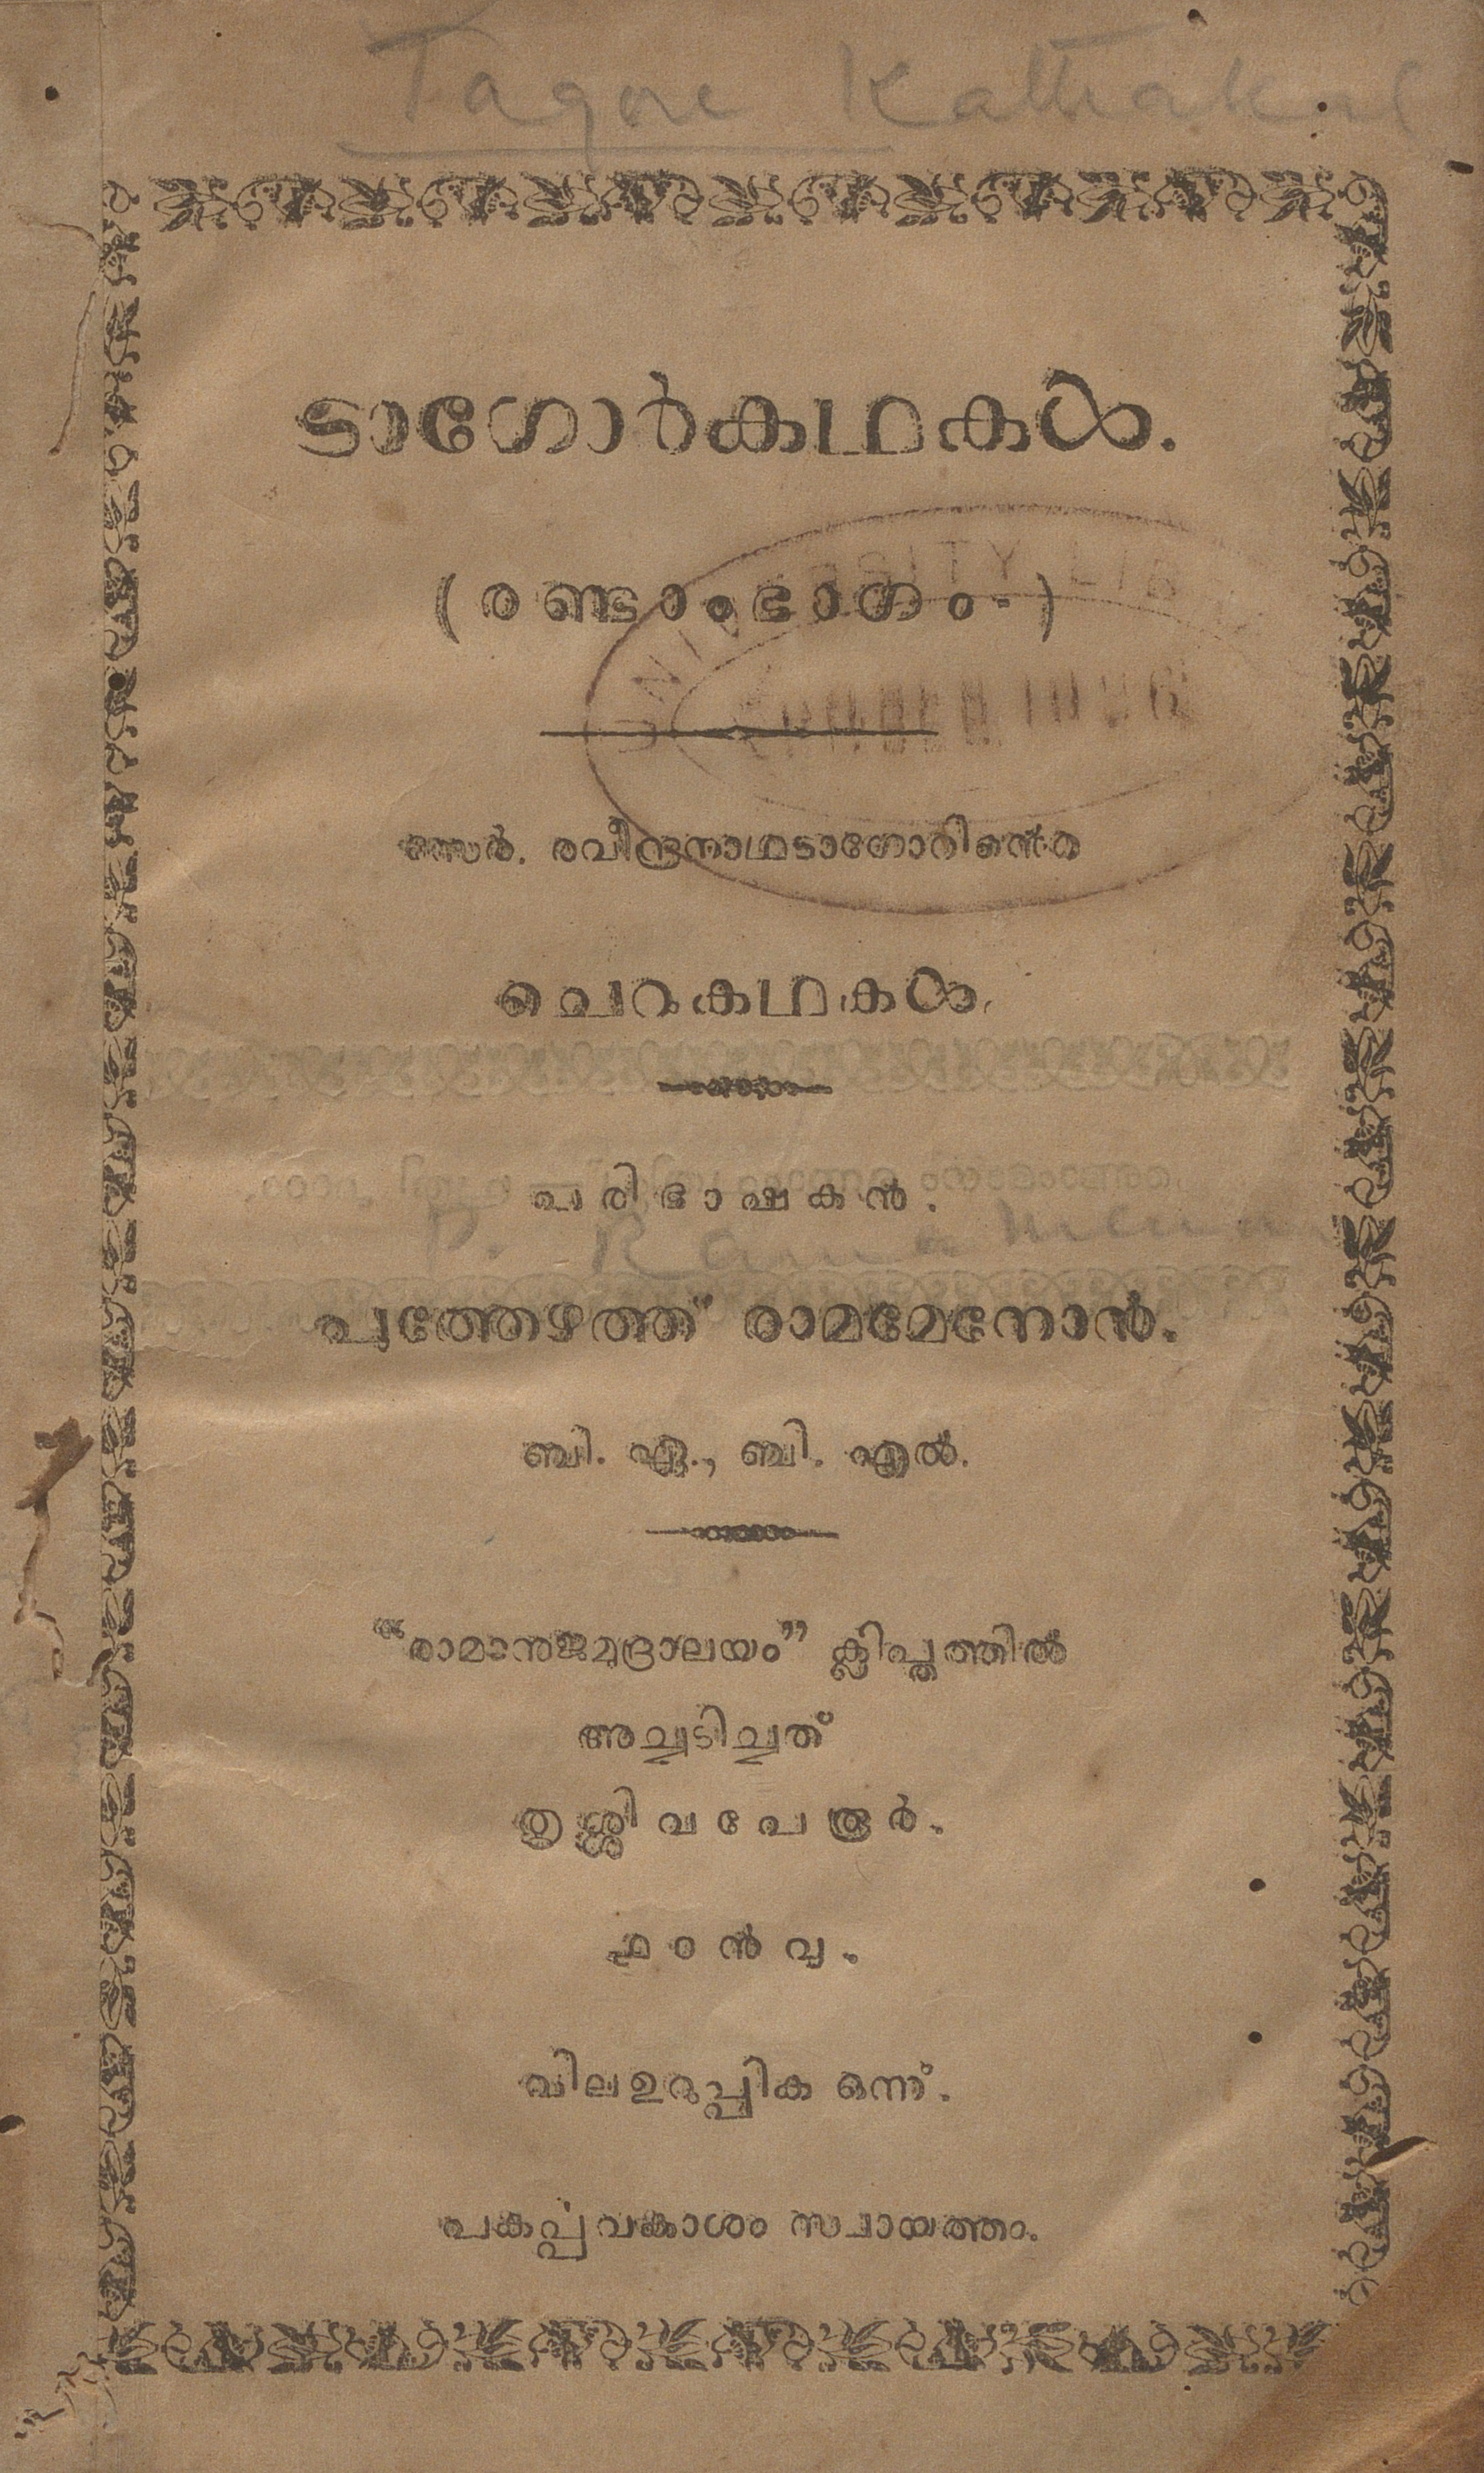 Tagore Kathakal
ടാഗോർകഥകൾ.
(രണ്ടാംഭാഗം.)
UNIVERSITY LIB
സേർ. രവീന്ദ്രനാഥടാഗോറിന്റെ
ചെറുകഥകൾ.
പരിഭാഷകൻ.
P. Rama Menon
പുത്തേഴത്ത് രാമമേനോൻ.
ബി. ഏ., ബി. എൽ.
“രാമാനുജമുദ്രാലയം” ക്ലിപ്തത്തിൽ
അച്ചടിച്ചത്
തൃശ്ശിവപേരൂർ.
൧൦൯൮.
വില ഉറുപ്പിക ഒന്ന്.
പകർപ്പവകാശം സ്വായത്തം.